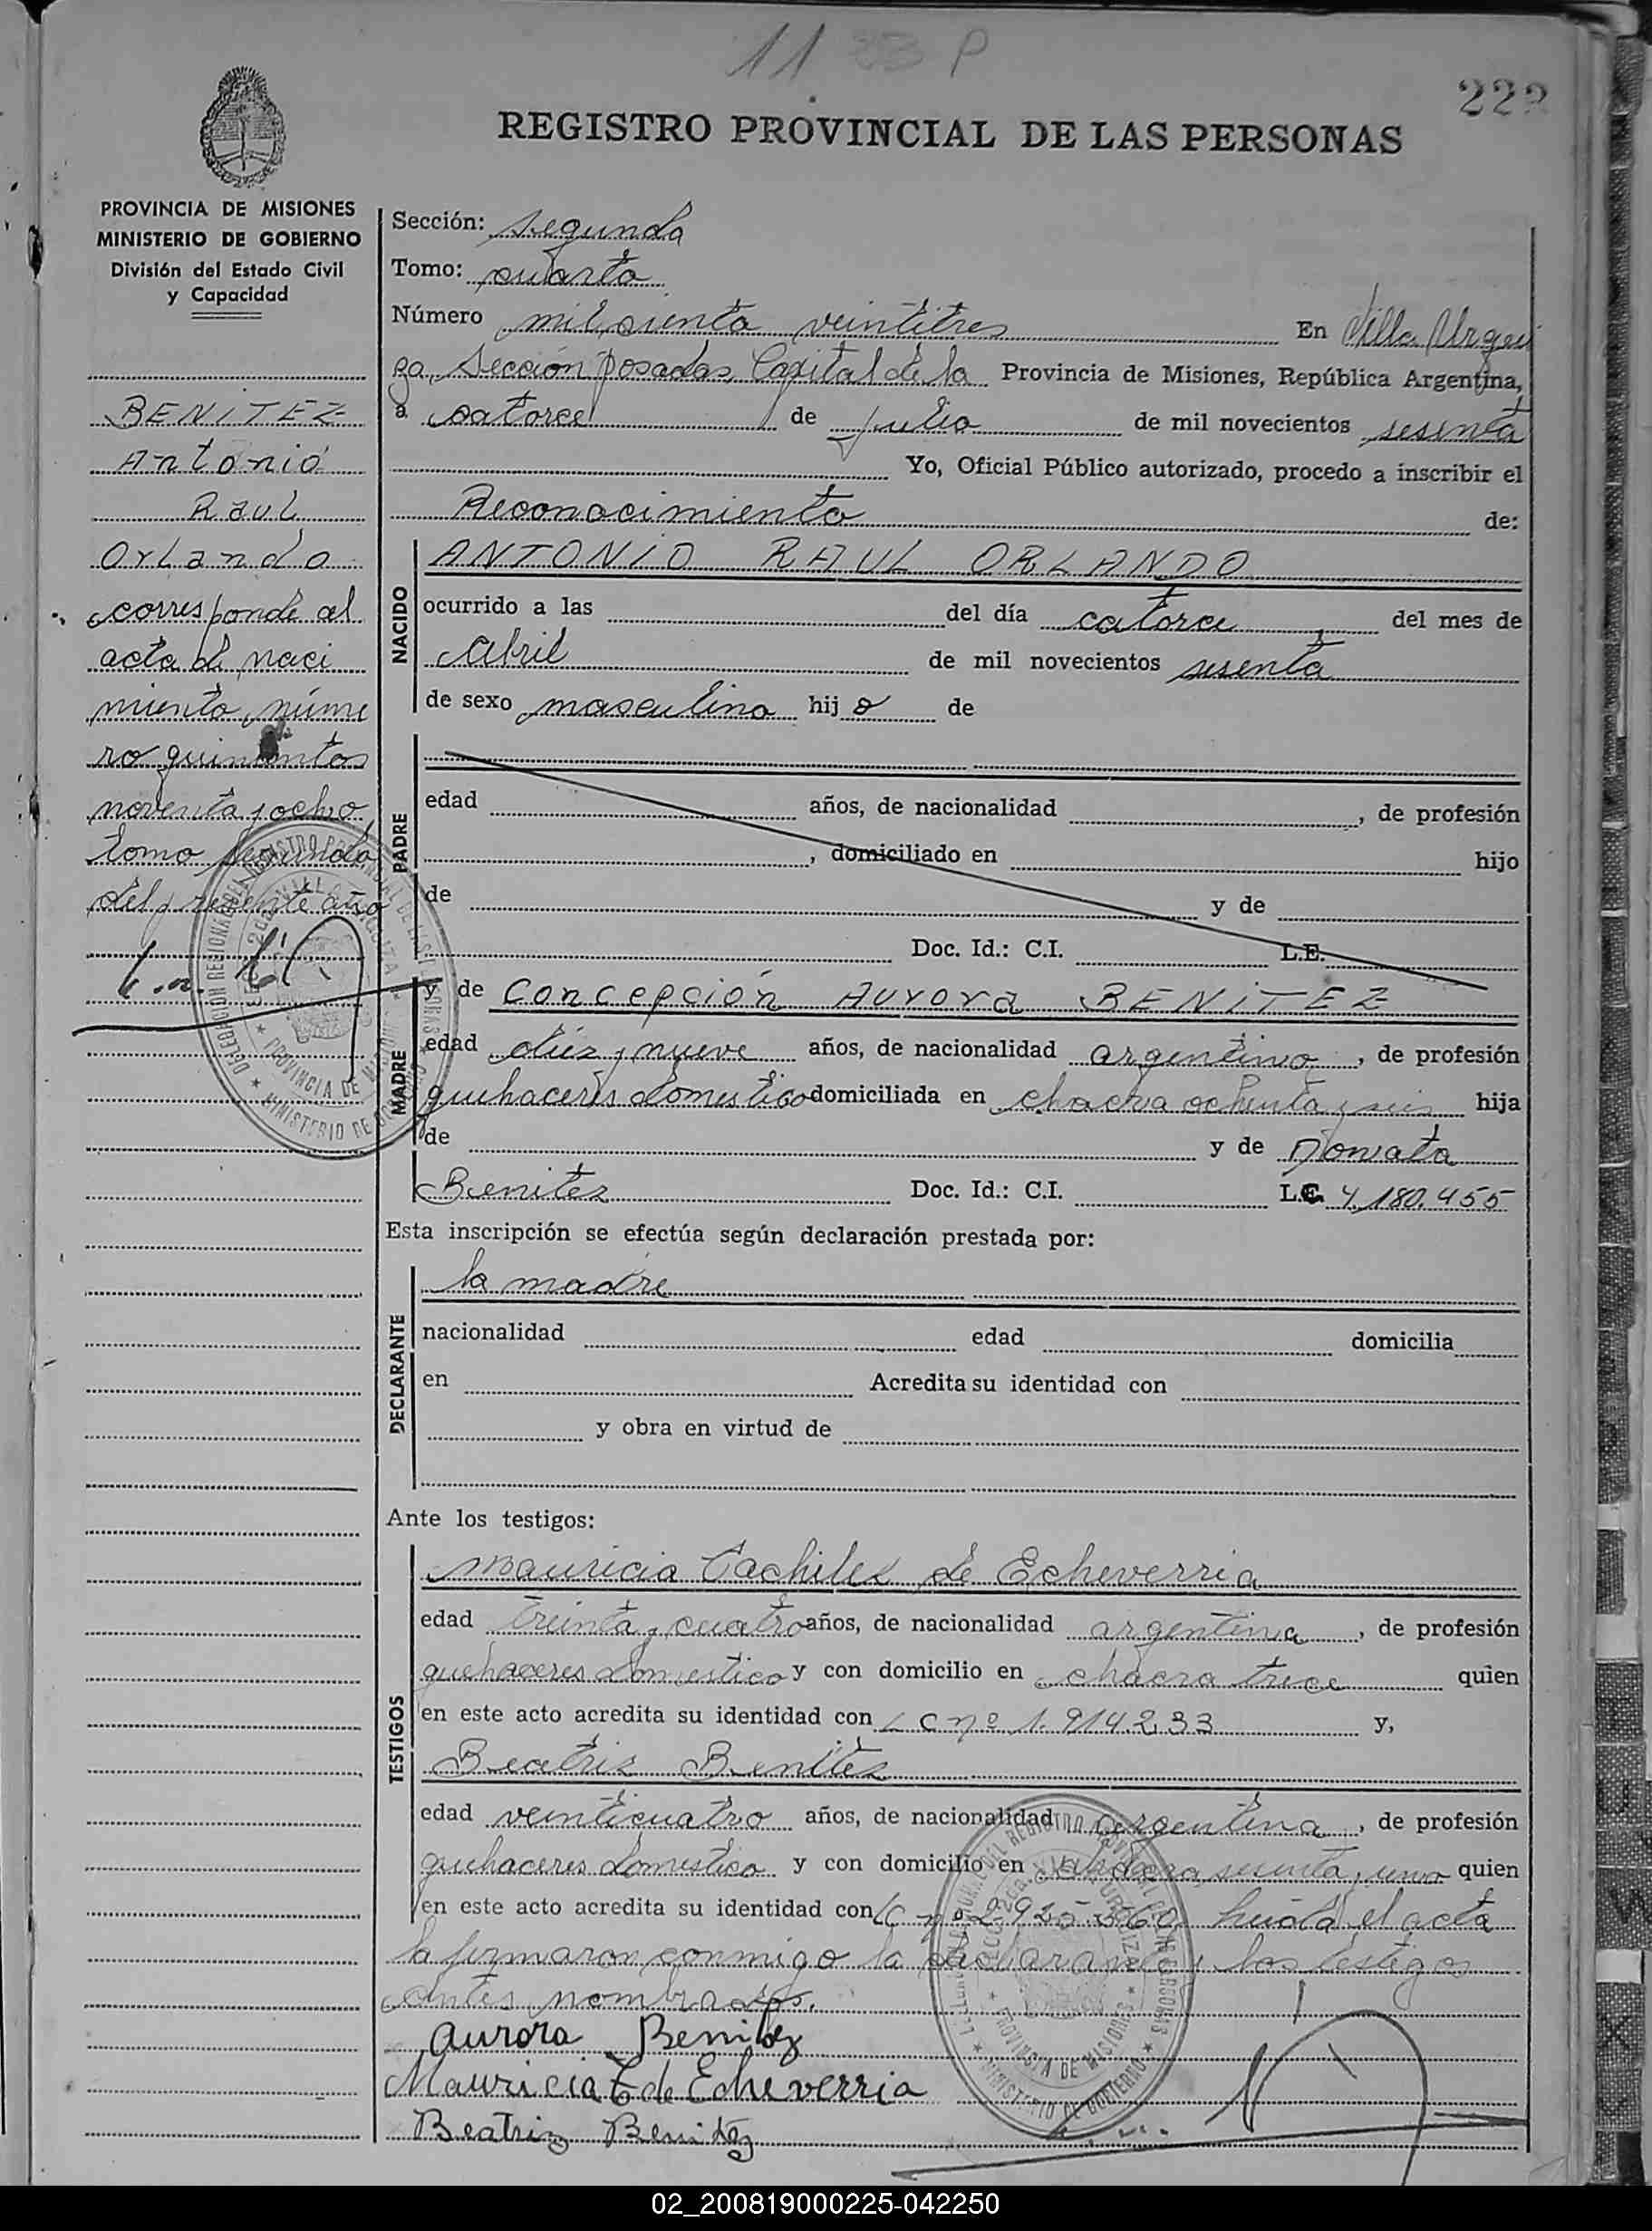 11 33 P
222
REGISTRO PROVINCIAL DE LAS PERSONAS
PROVINCIA DE MISIONES
MINISTERIO DE GOBIERNO
División del Estado Civil
y Capacidad
BENITEZ
Antonio
Raul
Orlando
corresponde al
acta de naci
miento núme
ro quinientos
noventa y ocho
tomo segundo
del presente año
Sección: segunda
Tomo: cuarto
Número mil ciento veintitres En Villa Urqui
za, Sección Posadas Capital de la Provincia de Misiones, República Argentina,
a catorce de Julio de mil novecientos sesenta
Yo, Oficial Público autorizado, procedo a inscribir el
Reconocimiento de:
NACIDO
ANTONIO RAUL ORLANDO
ocurrido a las del día catorce del mes de
Abril de mil novecientos sesenta
de sexo masculino hijo de
PADRE
edad años, de nacionalidad , de profesión
, domiciliado en hijo
de y de
Doc. Id.: C.I. L.E.
MADRE
y de Concepción Aurora BENITEZ
edad diez y nueve años, de nacionalidad argentina, de profesión
quehaceres domestico domiciliada en chacra ochenta y seis hija
de y de Donata
Benitez Doc. Id.: C.I. L.C. 4.180.455
Esta inscripción se efectúa según declaración prestada por:
DECLARANTE
la madre
nacionalidad edad domicilia
en Acredita su identidad con
y obra en virtud de
Ante los testigos:
TESTIGOS
Mauricia de Echeverria
edad treinta y cuatro años, de nacionalidad argentina, de profesión
quehaceres domestico y con domicilio en chacra trece quien
en este acto acredita su identidad con L C nº 1.914.233 y,
Beatriz Benitez
edad veinticuatro años, de nacionalidad argentina, de profesión
quehaceres domestico y con domicilio en chacra sesenta y una quien
en este acto acredita su identidad con LC nº 2.925.560 leída el acta
la firmaron conmigo la declarante y los testigos
antes nombrados.
Aurora Benitez
Mauricia C de Echeverria
Beatriz Benitez
DELEGACION REGIONAL DEL REGISTRO PROVINCIAL DE LAS PERSONAS
MINISTERIO DE GOBIERNO
PROVINCIA DE MISIONES
02_200819000225-042250